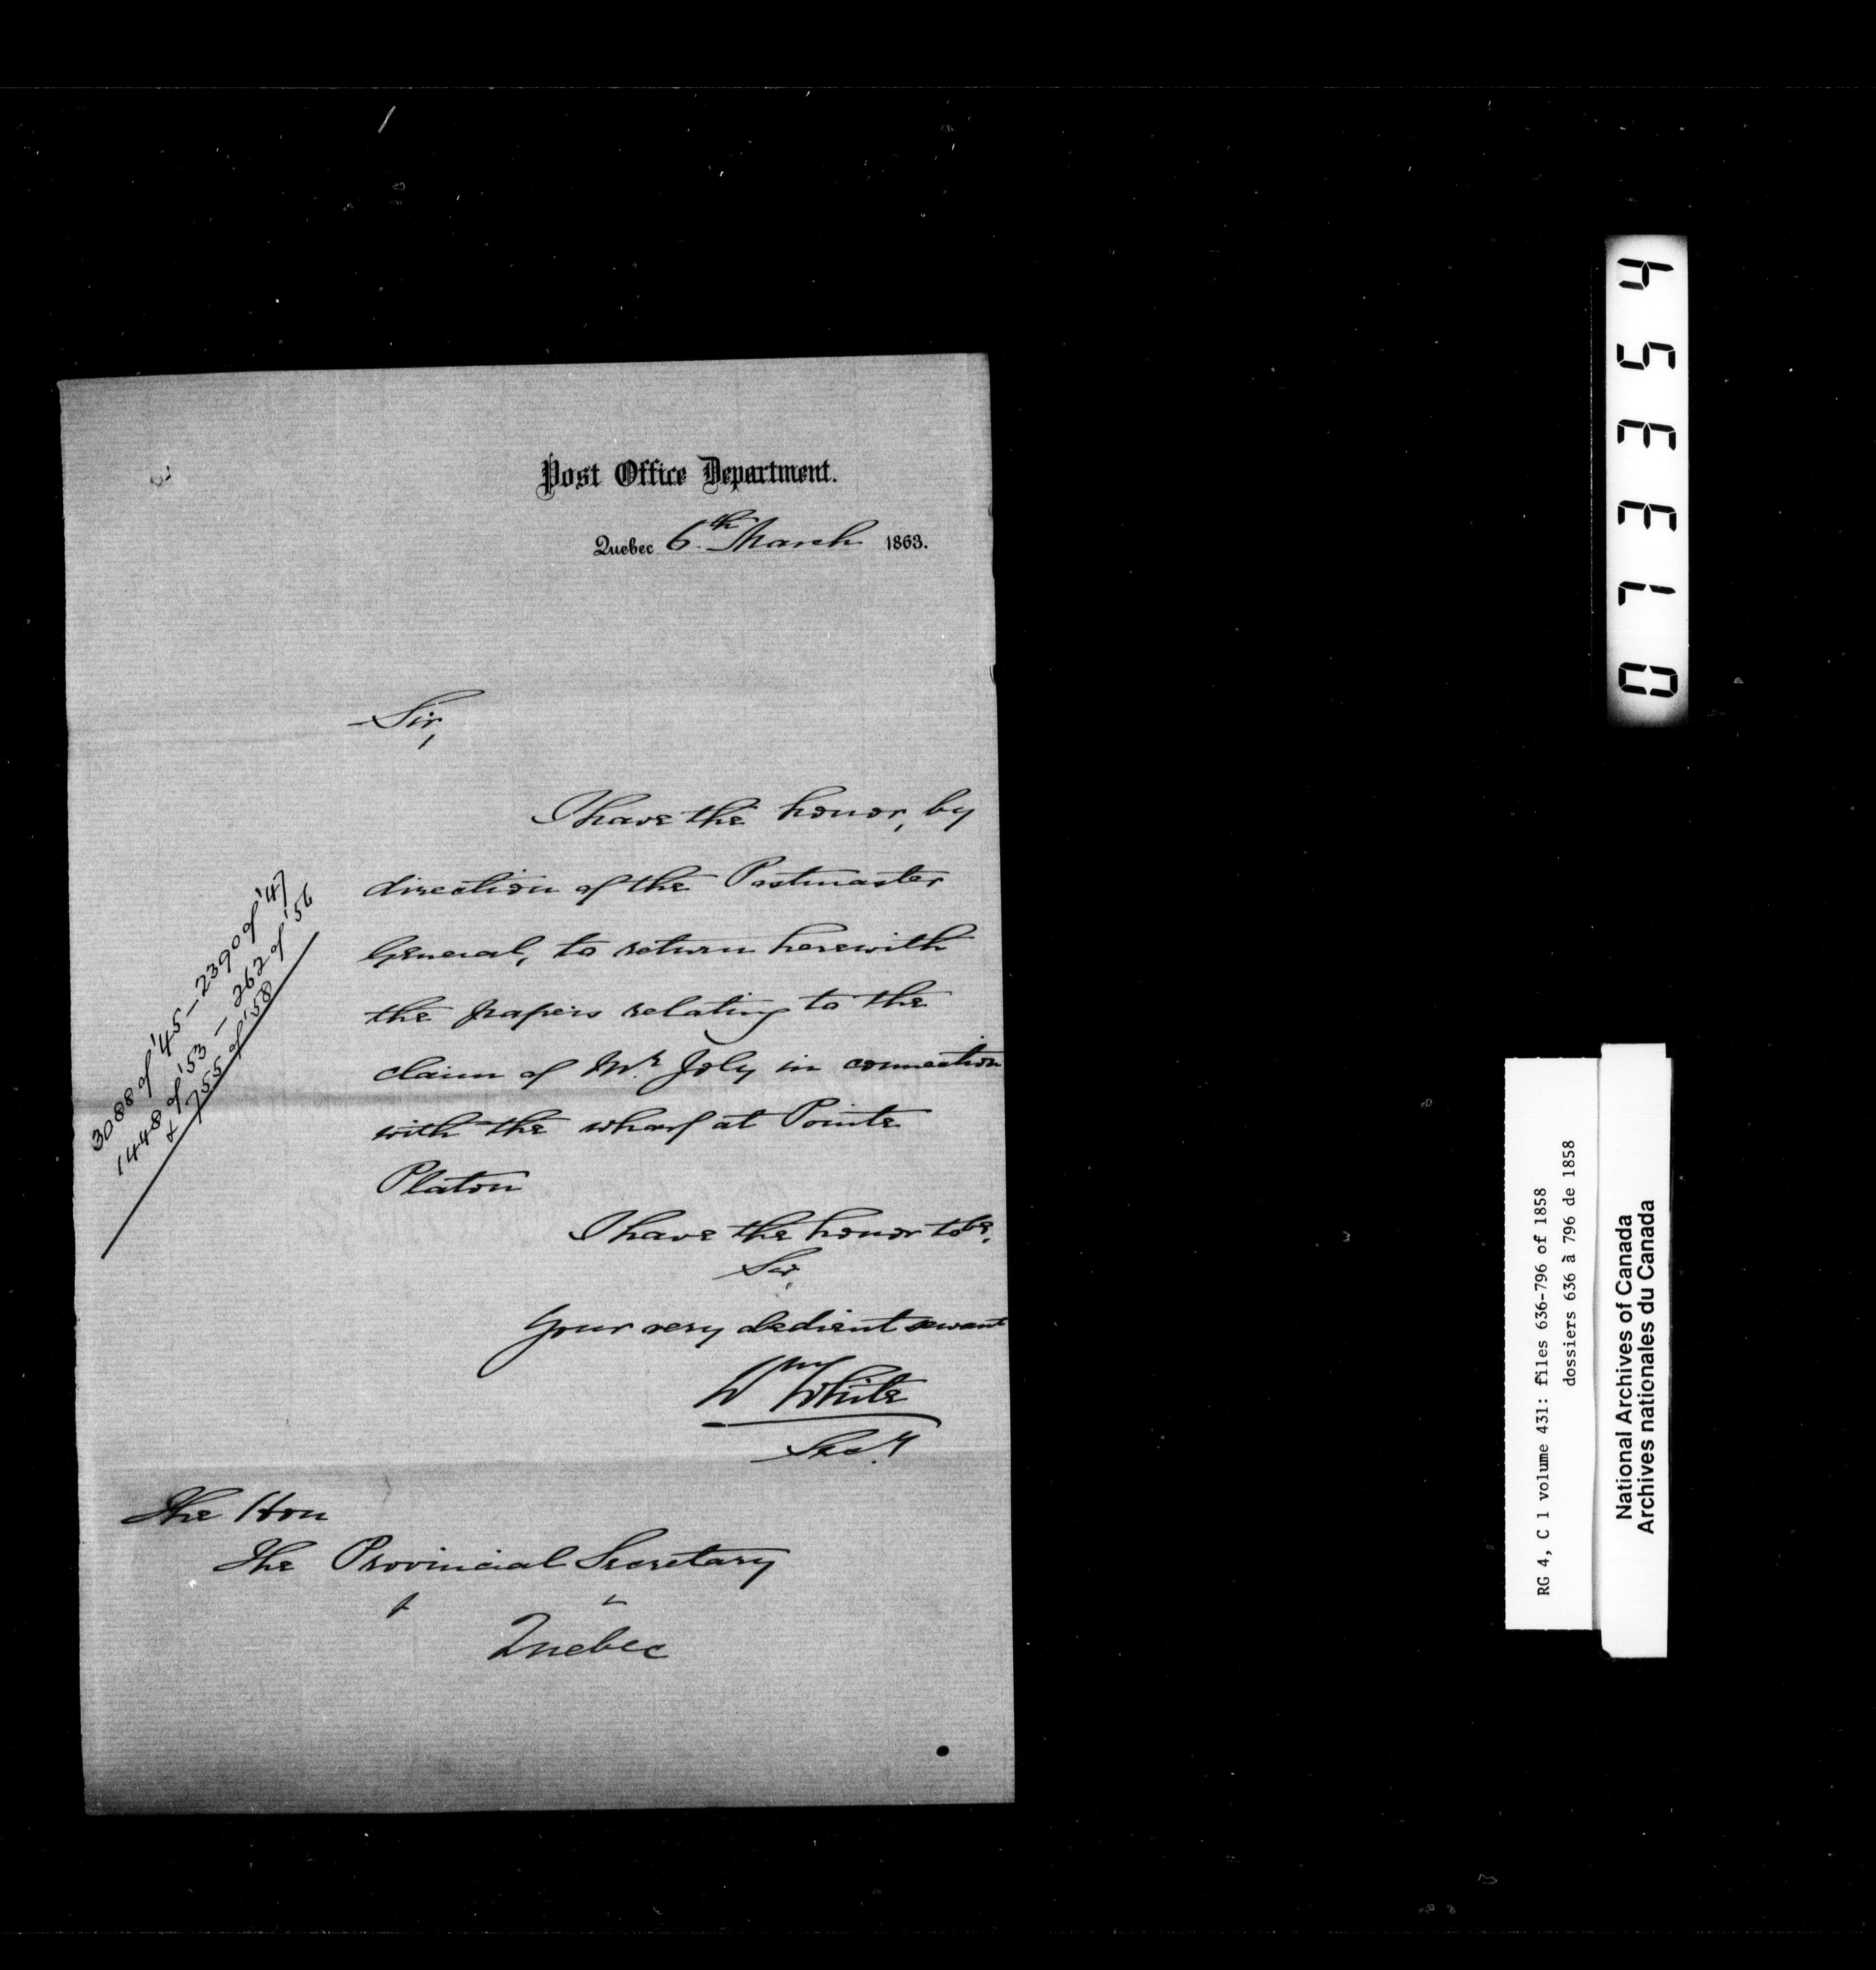 Post Office Department.
Quebec 6th March 1863.
Sir,
I have the honor, by
direction of the Postmaster
General, to return herewith
the papers relating to the
claim of Mr Joly in connection
with the wharf at Pointe
Platon
I have the honor to be,
Sir,
Your very obedient servant
Wm White
Secy
The Hon
The Provincial Secretary
Quebec
3088 of '45 - 2390 of '47
1448 of '53 - 262 of '56
& 755 of '58
0713354
RG 4, C 1 volume 431: files 636-796 of 1858
dossiers 636 à 796 de 1858
National Archives of Canada
Archives nationales du Canada